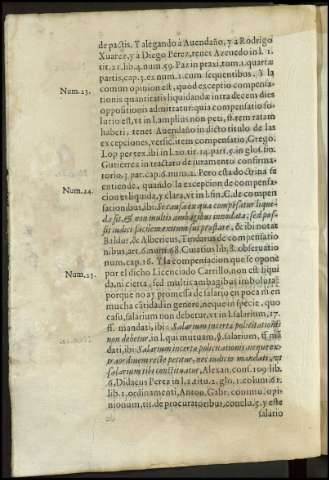 de pactis. Y alegando à Auendaño, y à Rodrigo
Xuarez, y à Diego Perez, tenet Azeuedo in l. 1.
tit. 21. lib. 4. num. 59. Paz in praxi, tom. 1. quartæ
partis, cap. 3. ex num. 1. cum sequentibus. Y la
Num. 23.
comun opinion est, quod exceptio compensa-
tionis quantitatis liquidandæ intra decem dies
oppositionis admittatur: quia compensatio so-
lutio est, vt in l. amplius non peti, ff. rem ratam
haberi, tenet Auendaño in dicto titulo de las
excepciones, versic. item compensatio, Grego.
Lop. per tex. ibi in l. 20. tit. 14. part. 5. in glos. fin.
Gutierrez in tractato de iuramento confirma-
torio, 3. par. cap. 6. num. 2. Pero esta doctrina se
entiende, quando la excepcion de compensa-
Num. 24.
cion es liquida, y clara, vt in l. fin. C. de compen-
sationibus, ibi: Si causa ex qua compẽsatur liqui-
da sit, & non multis ambagibus innodata, sed pos-
sit iudici facilem exitum sui præstare, & ibi notat
Baldus, & Albericus, Tindarus de compensatio
nibus, art. 6. num. 68. Curatius lib. 8. obseruatio
num, cap. 16. Y la compensacion que se opone
Num. 25.
por el dicho Licenciado Carrillo, non est liqui
da, ni cierta, sed multis ambagibus inuoluta:
porque no ay promessa de salario en poca ni en
mucha cãtidad in genere, neque in specie, quo
casu, salarium non debetur, vt in l. salarium, 17.
ff. mandati, ibi: Salarium incertæ policitationis
non debetur, in l. qui mutuam, §. salarium, ff. mã
dati, ibi: Salarium incertæ policitationis neque ex-
traordinem recte petitur, nec iudicio mandati, vt
salarium tibi constituatur, Alexan. cons. 109. lib.
6. Didacus Perez in l. 2. titu. 2. glo. 1. colum. 61.
lib. 1. ordinamenti, Anton. Gabr. commu. opi-
nionum, tit. de procuratoribus, conclu. 5. y este
salario